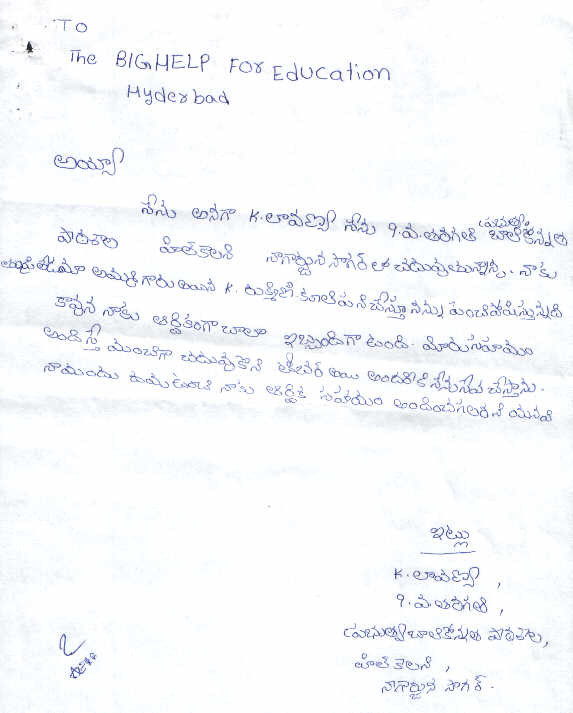 TO
The BIGHELP FOr EdUCation
Hyderbad
అయ్యా
నేను అనగా K.లావణ్య నేను 9.వ.తరగతి ప్రభుత్వ బాలికోన్నత
పాఠశాల హిల్‌కాలని నాగార్జున సాగర్ లో చదువుతున్నాను. నాకు
తండ్రి లేడు మా అమ్మ గారు అయిన K. రుక్మిణి కూలి పని చేస్తూ నన్ను పెంచి పోషిస్తున్నది
కావున నాకు ఆర్థికంగా చాలా ఇబ్బందిగా ఉంది. మీరు సహాయం
అందిస్తే మంచిగా చదువుకొని టీచర్ అయి అందరికి నేను సేవ చేస్తాను.
నాయందు దయ ఉంచి నాకు ఆర్థిక సహాయం అందించగలరని మనవి
ఇట్లు
K.లావణ్య,
9.వ.తరగతి,
ప్రభుత్వ బాలికోన్నత పాఠశాల,
హిల్ కాలని,
నాగార్జున సాగర్.